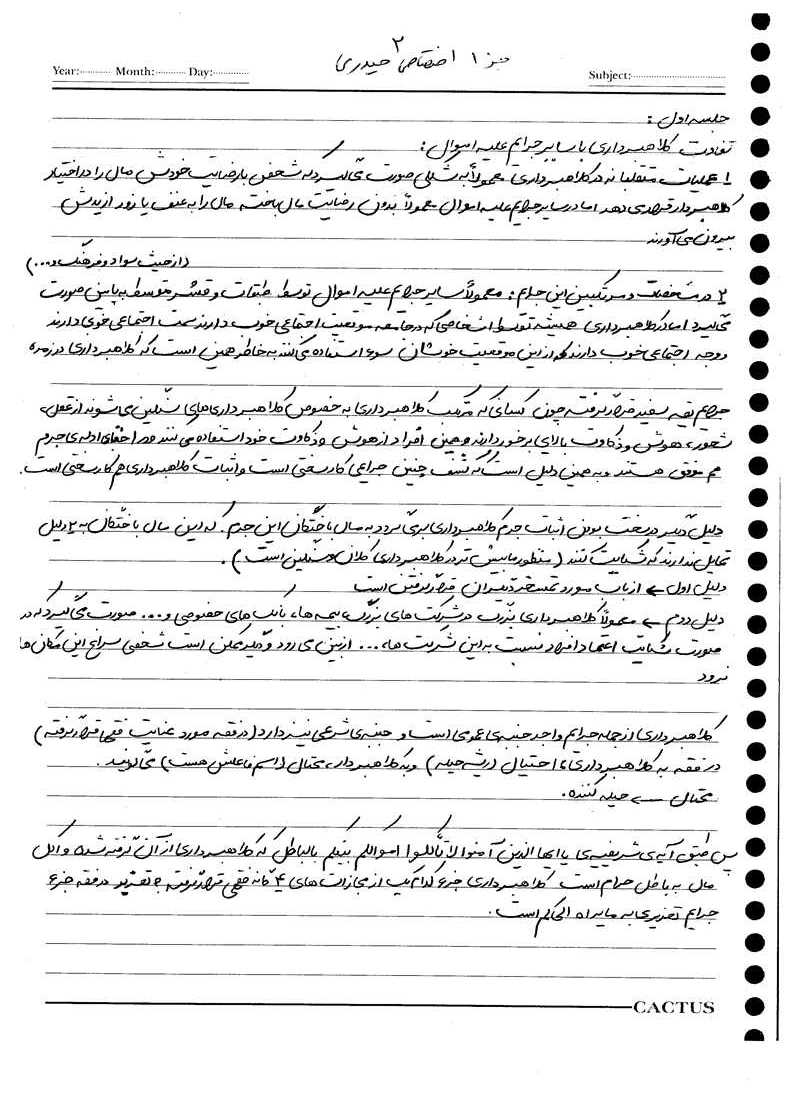 جزا ۱ اختصاصی ۲ حیدری
Year:........... Month:.......... Day:.............
Subject:................................
جلسه اول :
تفاوت کلاهبرداری با سایر جرایم علیه اموال :
۱ عملیات متقلبانه در کلاهبرداری معمولاً به شکلی صورت می‌گیرد که شخص با رضایت خودش مال را در اختیار
کلاهبردار قرار می‌دهد اما در سایر جرایم علیه اموال معمولاً بدون رضایت مال باخته مال را به عنف یا زور از یدش
بیرون می‌آورند
(از حیث سواد و فرهنگ و...)
۲ در مشخصات و مرتکبین این جرایم : معمولاً سایر جرایم علیه اموال توسط طبقات و قشر متوسط به پایین صورت
می‌گیرد اما در کلاهبرداری همیشه توسط اشخاصی که در جامعه موقعیت اجتماعی خوب دارند سمت اجتماعی خوبی دارند
و وجه اجتماعی خوب دارند که از این موقعیت خوشان سوء استفاده می‌کنند به خاطر همین است که کلاهبرداری در زمره
جرایم یقه سفید قرار گرفته چون کسانی که مرتکب کلاهبرداری به خصوص کلاهبرداری‌های سنگین می‌شوند از عقل،
شعور، هوش و ذکاوت بالای برخوردارند و همین افراد از هوش و ذکاوت خود استفاده می‌کنند و در اخفای ادله‌ی جرم
هم موفق هستند و به همین دلیل است که کشف چنین جرایمی کار سختی است و اثبات کلاهبرداری هم کار سختی است.
دلیل دیگر در سخت بودن اثبات جرم کلاهبرداری بر می‌گردد به مال باختگان این جرم. که این مال باختگان به ۲ دلیل
تمایل ندارند که شکایت کنند ( منظور ما بیش تر در کلاهبرداری کلان و سنگین است ) .
دلیل اول ← از باب مورد تمسخر دیگران قرار گرفتن است
دلیل دوم ← معمولاً کلاهبرداری بزرگ در شرکت های بزرگ، بیمه ها، بانک های خصوصی و... صورت می‌گیرد که در
صورت شکایت اعتماد افراد نسبت به این شرکت ها، ... از بین می رود و دیگر ممکن است شخصی سراغ این مکان ها
نرود
کلاهبرداری از جمله جرایم واجد جنبه‌ی عمومی است و جنبه‌ی شرعی نیز دارد ( در فقه مورد عنایت فقهی قرار گرفته )
در فقه به کلاهبرداری، احتیال (ریشه حیله) و به کلاهبردار، محتال (اسم فاعلش هست) می‌گویند.
محتال ← حیله کننده.
پس طبق آیه‌ی شریفه‌ی یا ایها الذین آمنوا لا تأکلوا اموالکم بینکم بالباطل که کلاهبرداری از آن گرفته شده و اکل
مال به باطل حرام است کلاهبرداری جزء کدام یک از مجازات های ۴ گانه فقهی قرار گرفته ؟ تعزیر در فقه جزء
جرایم تعزیری به ما یراه الحاکم است.
CACTUS